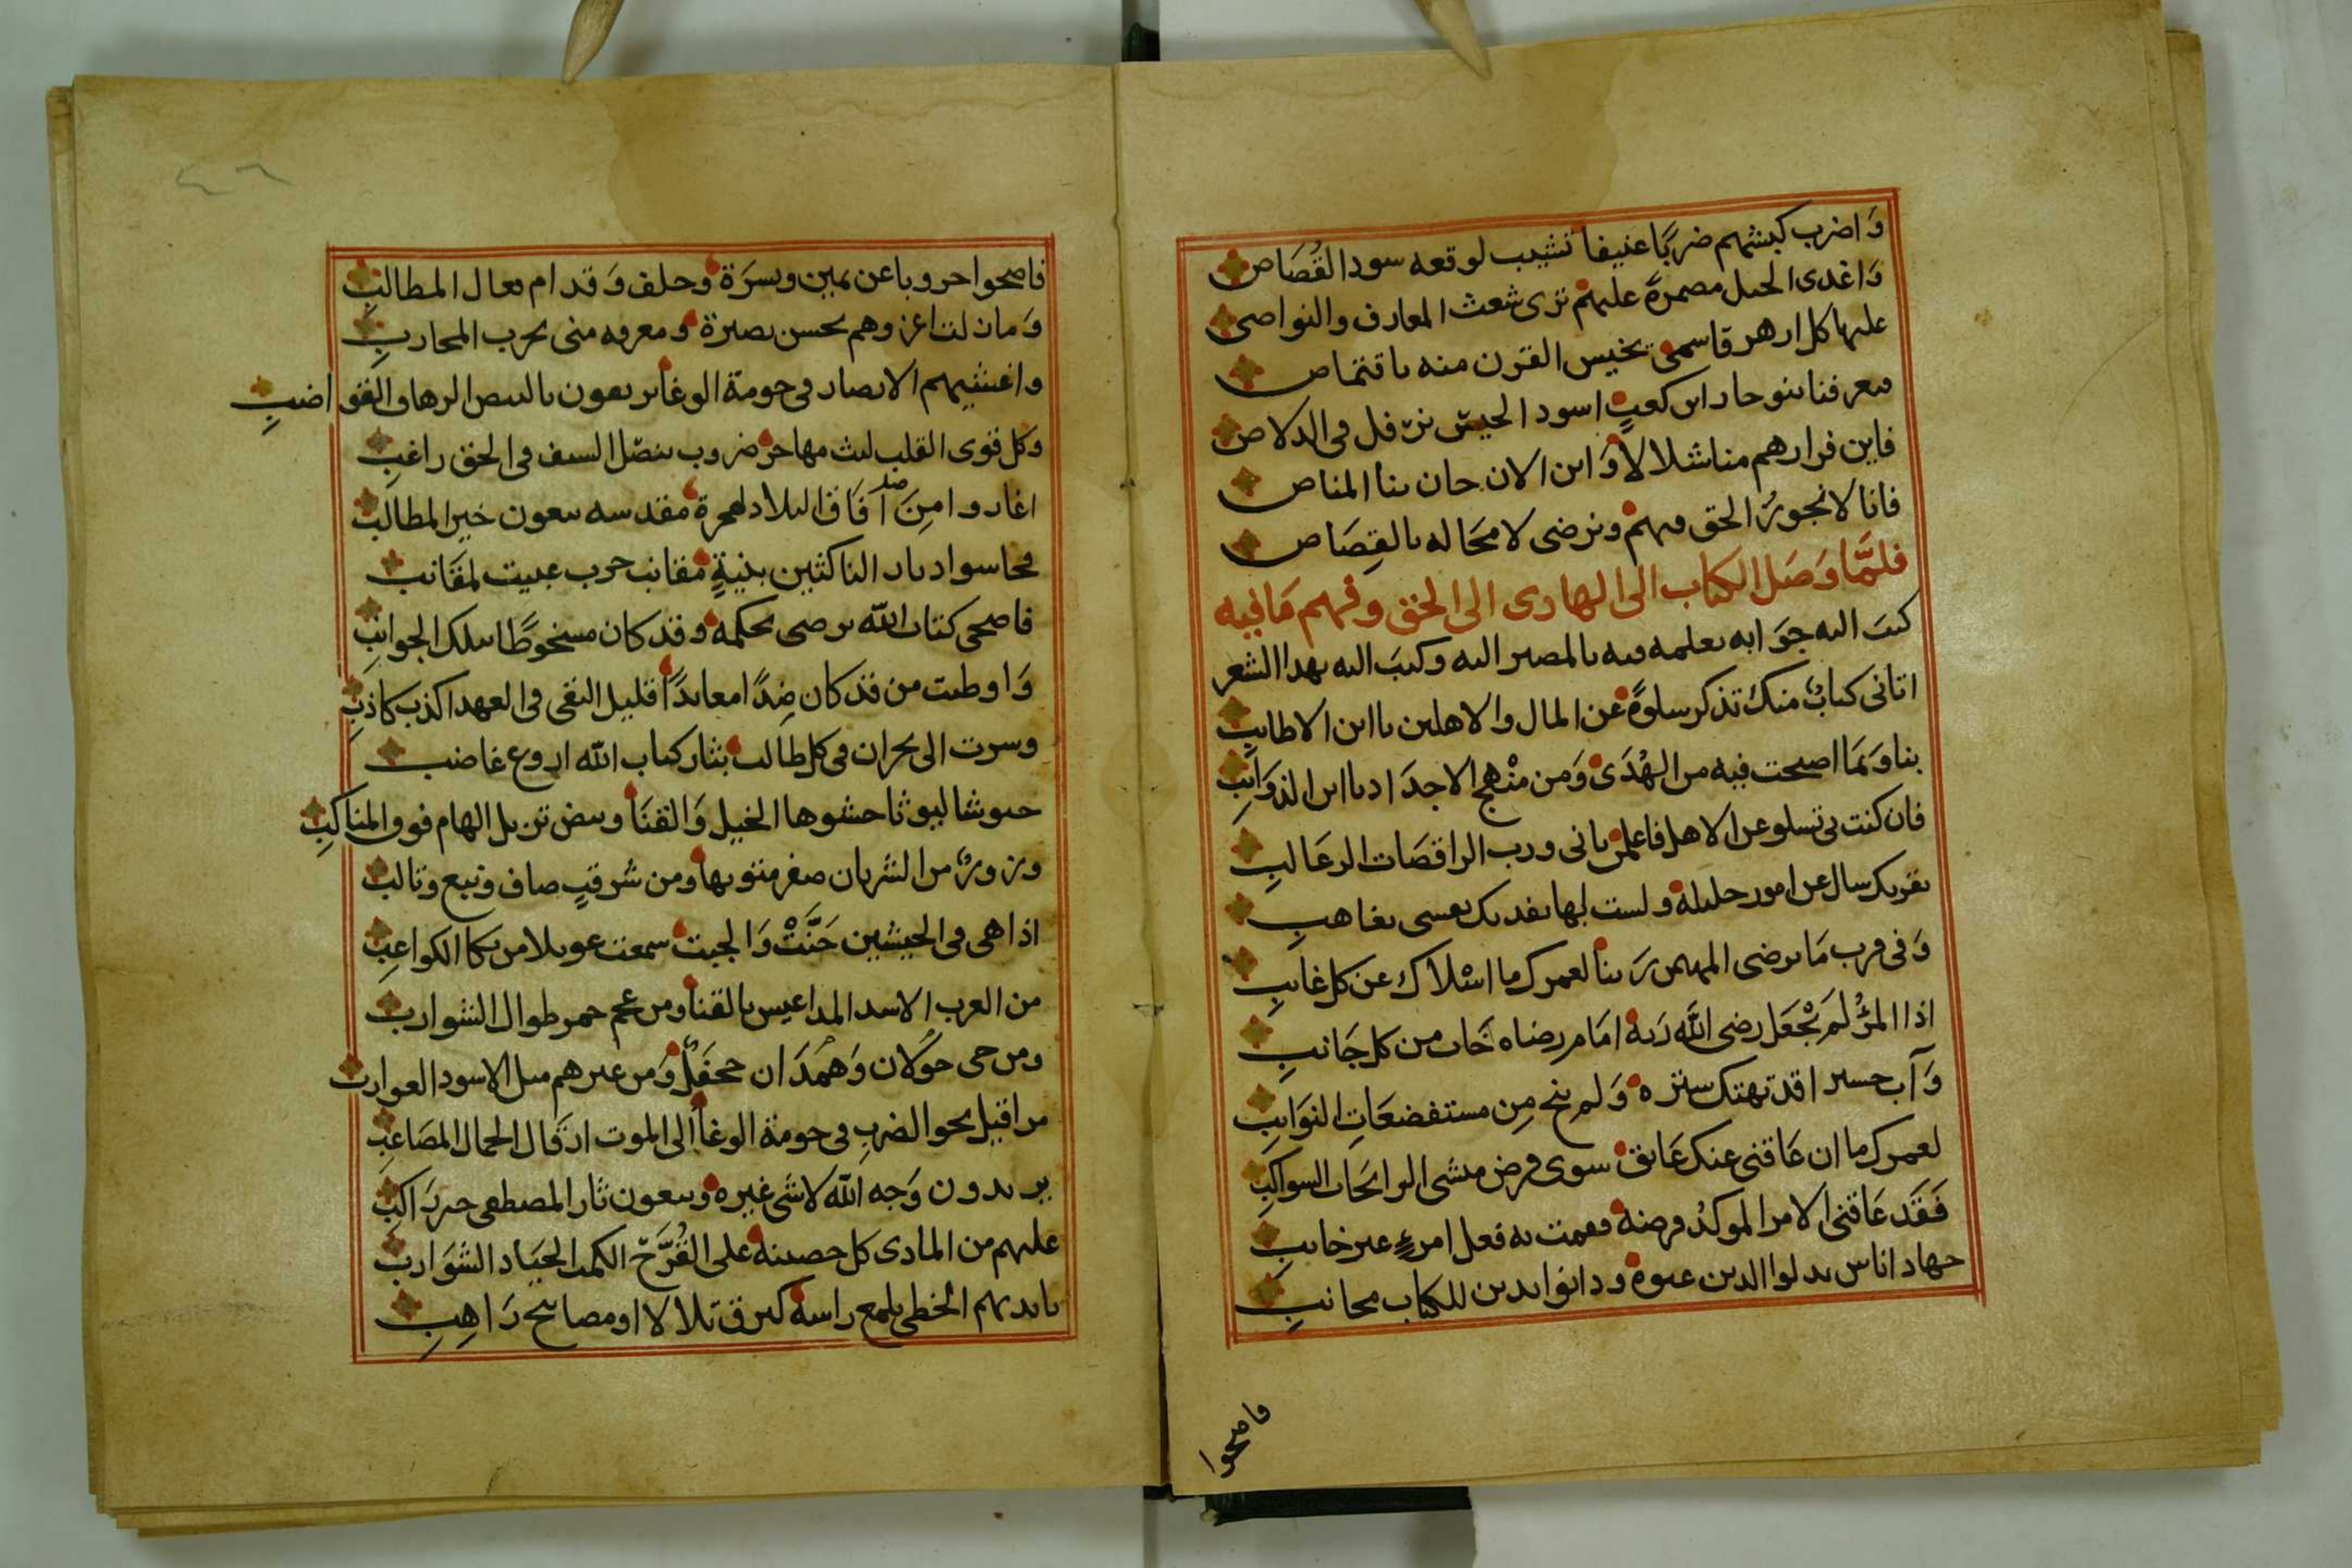 وَاضرب كبشهم ضربًا عنيفا تشيب لوقعه سود القُصَاص
وَاغدى الخيل مصمرةً عليهم ترى شعث المعارف والنواصى
عليها كل ارهر قاسمى يخيس القرن منه باقتماص
معرفنا بنو حار ابن كعبٍ اسود الحيش ترفل فى الدلاص
فاين فرارهم منا شلالا وَاين الان حان بنا المناص
فانا لا نجورُ الحق فيهم ونرضى لا محَاله بالقِصَاص
فلمَّا وَصَل الكتاب الى الهادى الى الحق وفهم مَا فيه
كتبَ اليه جوَابه يعلمه فيه بالمصير اليه وكتبَ اليه بهدا الشعر
اتانى كتابٌ منك تذكر سلوةً عن المال والاهلين يا ابن الاطايبِ
بنا وَبمَا اصبحت فيه من الهُدَى وَمن منْهج الاجدَاد يا ابن الذوَايبِ
فان كنت بى تسلو عن الاهل فاعلمن بانى ورب الراقصَات الرعَالبِ
بقربك سال عن امور جليلة ولست لها بفديك نفسى بغاهبِ
وَفى قرب مَا يرضى المهيمن رَبنا لعمرك ما اسْلاك عن كل غايبِ
اذا المرْؤُ لَم يجْعَل رضى اللَّه رَبه امَام رضاه خَاب من كل جَانبِ
وَآب حسيرا قد تهتك ستره وَلم ينج مِن مستفضعَاتِ النوَايبِ
لعمرك ما ان عَاقنى عنك عَايق سوى فرض منشى الرايحَات السواكبِ
فَقَد عَاقنى الامر الموكدُ فرضه فقمت به فعل امرءٍ غير خايبِ
جهاد اناس بدلوا الدين عنوة ودانوا بدين للكتاب مجانبِ
فاصحوا
فاصحوا حروبا عن يمين ويسرَة وحلف وَقدام فعال المطالبِ
وَما زلت اغزوهم بحسن بصيرة ومعرفه منى بحرب المحاربِ
واغشيهم الانصار فى حومة الوغا يريعون بالبيض الرهاف القواضبِ
وكل قوى القلب ليث مهاجر ضروب بنصل السيف فى الحق راغبِ
اغاروا مِنَ آفَاق البلاد لهجرة مقدسه يبغون خير المطالب
فجاسوا ديار الناكثين بنيةٍ مقانب حرب عبيت لمقَانب
فاصحى كتاب اللّه يرضى بحكمه وقد كان مسخوطًا بتلك الجوانبِ
وَاوطيت من قد كان ضِدًا معاندًا قليل التقى فى العهد اكذب كاذبِ
وسرت الى نجران فى كل طالب بثار كتاب اللّه اروع غاضب
جيوشا ليوثا حشوها الخيل وَالقنَا وبيض تزيل الهام فوق المناكبِ
وزورٌ من الشريان صفر متونها ومن شرقبٍ صاف ونبع وتالب
اذا هى فى الجيشين حَنَّتْ وَالجيت سمعت عويلا من بكا الكواعبِ
من العرب الاسد المداعيس بالقنا ومن عجم حمر طوال الشوارب
ومن حى خوْلان وَهمدَان جحفَلٌ وَمن غيرهم مثل الاسود العوارب
مراقيل نحو الضربِ فى حومة الوغا الى الموت ارقال الجمال المصَاعبِ
يريدون وَجه اللّه لا شى غيره ويبغون ثار المصطفى خير رَاكبِ
عليهم من المادى كل حصينه على القُرَّح الكمت الجيَاد الشوَاربِ
بايديهم الخطى يلمع راسه كبرق تلالا او مصابيح رَاهِبِ